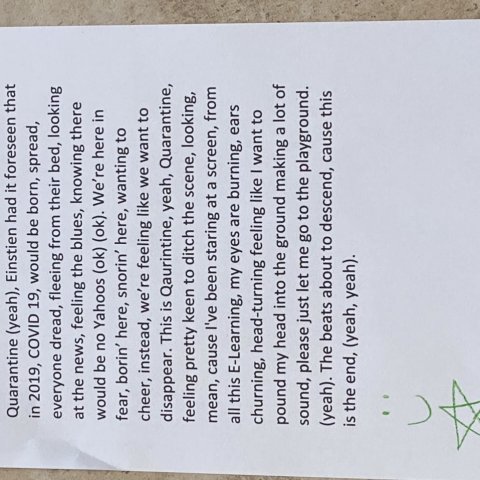 Quarantine (yeah), Einstien had it foreseen that
in 2019, COVID 19, would be born, spread,
everyone dread, fleeing from their bed, looking
at the news, feeling the blues, knowing there
would be no Yahoos (ok) (ok). We're here in
fear, borin' here, snorin' here, wanting to
cheer, instead, we're feeling like we want to
disappear. This is Qaurintine, yeah, Quarantine,
feeling pretty keen to ditch the scene, looking,
mean, cause I've been staring at a screen, from
all this E-Learning, my eyes are burning, ears
churning, head-turning feeling like I want to
pound my head into the ground making a lot of
sound, please just let me go to the playground.
(yeah). The beats about to descend, cause this
is the end, (yeah, yeah).